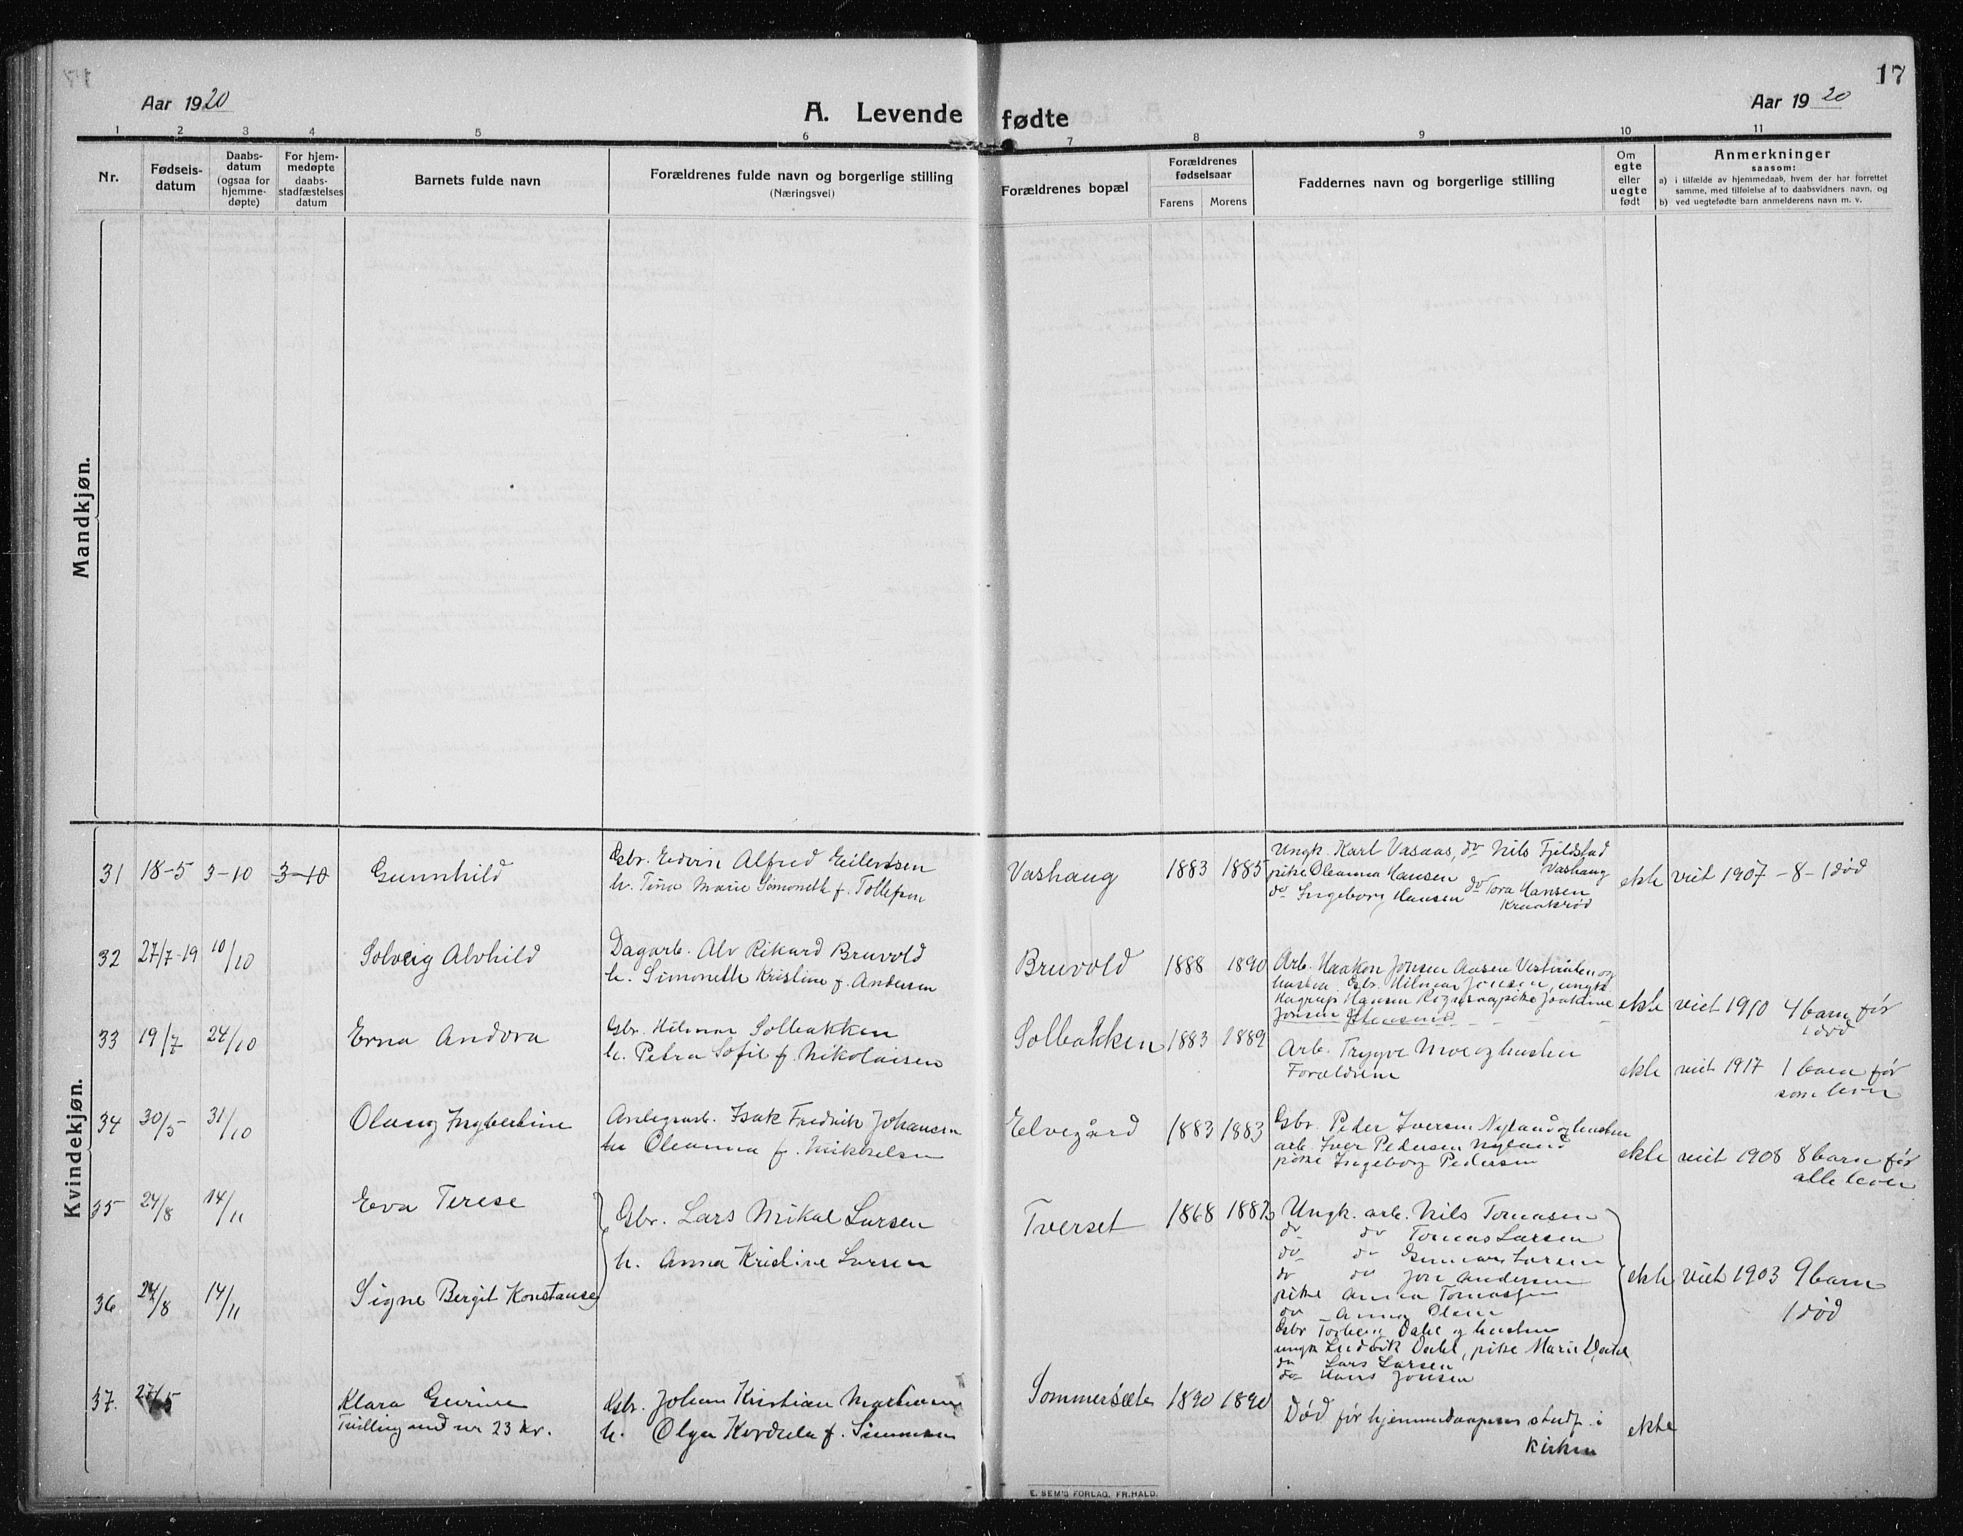 17
Aar 1920
A. Levende fødte
Aar 1920
1 2 3 4 5 6 7 8 9 10 11
Nr.
Fødsels-
datum
Daabs-
datum
(ogsaa for
hjemme-
døpte)
For hjem-
medøpte
daabs-
stadfæstelses
datum
Barnets fulde navn
Forældrenes fulde navn og borgerlige stilling
(Næringsvei)
Forældrenes bopæl
Forældrenes
fødselsaar
Farens Morens
Faddernes navn og borgerlige stilling
Om
egte
eller
uegte
født
Anmerkninger
saasom:
a) i tilfælde av hjemmedaab, hvem der har forrettet
samme, med tilføielse af to daabsvidners navn, og
b) ved uegtefødte barn anmelderens navn m. v.
Mandkjøn.
Kvindekjøn.
31 18-5 3-10 3-10 Gunnhild
Gbr. Edvin Alfred Eilertsen
h. Tina Marie Simonette f. Tollefsen
Vashaug 1883 1885
Ungk. Karl Vasaas, do Nils Fjeldstad
Vashaug
pike Oleanna Hansen do Tora Hansen
do Ingeborg Hansen Kraakrød
ekte viet 1907 - 8 - 1 død
32 27/7-19 10/10 Solveig Alvhild
Dagarb. Alv Rikard Bruvold
h. Simonette Kristine f. Andersen
Bruvold 1888 1890
Arb. Haakon Jonsen Aasen og
hustru Gbr. Hilmar Jonsen, ungk
Hansen pike Joakine
Jonsen
ekte viet 1910 4 barn før
1 død
33 19/7 24/10 Erna Andora
Gbr. Hilmar Solbakken
h. Petra Sofie f. Nikolaisen
Solbakken 1883 1889
Arb. Trygve Moe og hustru
Forældrene
ekte viet 1917 1 barn før
som lever
34 30/5 31/10 Olaug Ingebertine
Anlegsarb. Isak Fredrik Johansen
h. Oleanna f. Mikkelsen
Elvegård 1883 1883
Gbr. Peder Iversen Nyland og hustru
arb. Iver Pedersen Nyland
pike Ingeborg Pedersen
ekte viet 1908 8 barn før
alle lever
35 24/8 14/11 Eva Terese
Gbr. Lars Mikal Larsen
h. Anna Kristine Larsen
36 24/8 14/11 Signe Bergit Konstanse
Tverset 1868 1883
Ungk. arb. Nils Tomasen
do do Tomas Larsen
do do Gunnar Larsen
do do Jon Andersen
pike Anna Tomassen
do Anna Olsen
Gbr Torberg Dahl og hustru
ungk Ludvik Dahl, pike Marie Dahl
do Lars Larsen
do Hans Jonsen
ekte viet 1903 9 barn
1 død
37. 27/5 Klara Gurine
Tvilling med nr 23 kr.
Gbr. Johan Kristian
h. Olga Kordula f. Simonsen
Sommersæte 1890 1890
Død før hjemmedaapens stadf. i
kirken
ekte
E. SEM'S FORLAG, FR.HALD.